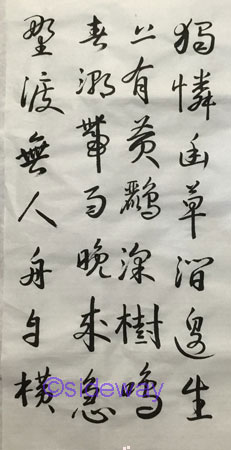 獨憐幽草澗邊生
上有黃鸝深樹鳴
春潮帶雨晚來急
野渡無人舟自橫
©sideway